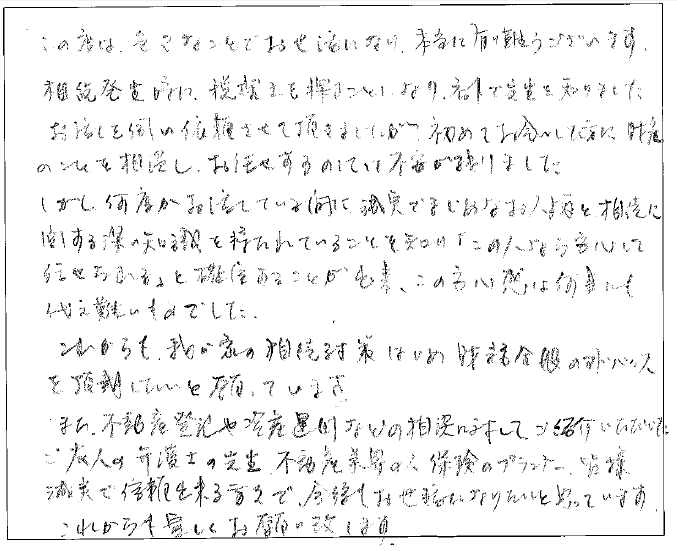 この度は、色々なことでお世話になり、本当に有り難うございます。
相続発生時に、税理士を探すことになり、紹介で先生を知りました
お話しを伺い依頼させて頂きましたが、初めてお会いした方に財産
のことを相談し、お任せするのには不安が残りました
しかし、何度かお話している間に誠実でまじめなお人柄と相続に
関する深い知識を持たれていることを知り「この人なら安心して
任せられる」と確信することが出来、この安心感は何事にも
代え難いものでした。
これからも、我が家の相続対策はじめ財務全般のアドバイス
を頂戴したいと願っています
また、不動産登記や資産運用などの相談にましてご紹介いただいた
ご友人の弁護士の先生、不動産業界の人、保険のプランナー、皆様
誠実で信頼出来る方々で、今後もお世話になりたいと思っています
これからも宜しくお願い致します